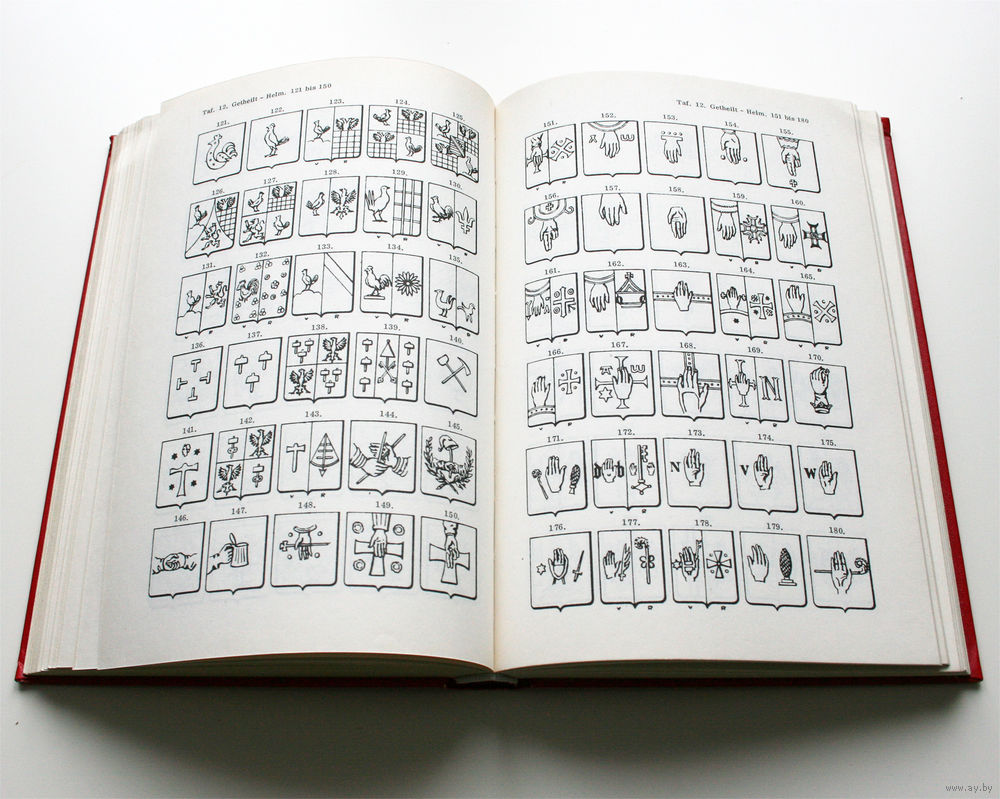 Taf. 12. Getheilt – Helm. 121 bis 150
121. 122. 123. 124. 125.
126. 127. 128. 129. 130.
131. 132. 133. 134. 135.
136. 137. 138. 139. 140.
141. 142. 143. 144. 145.
146. 147. 148. 149. 150.
Taf. 12. Getheilt – Helm. 151 bis 180
151. 152. 153. 154. 155.
156. 157. 158. 159. 160.
161. 162. 163. 164. 165.
166. 167. 168. 169. 170.
N
171. 172. 173. 174. 175.
N V W
176. 177. 178. 179. 180.
www.ay.by